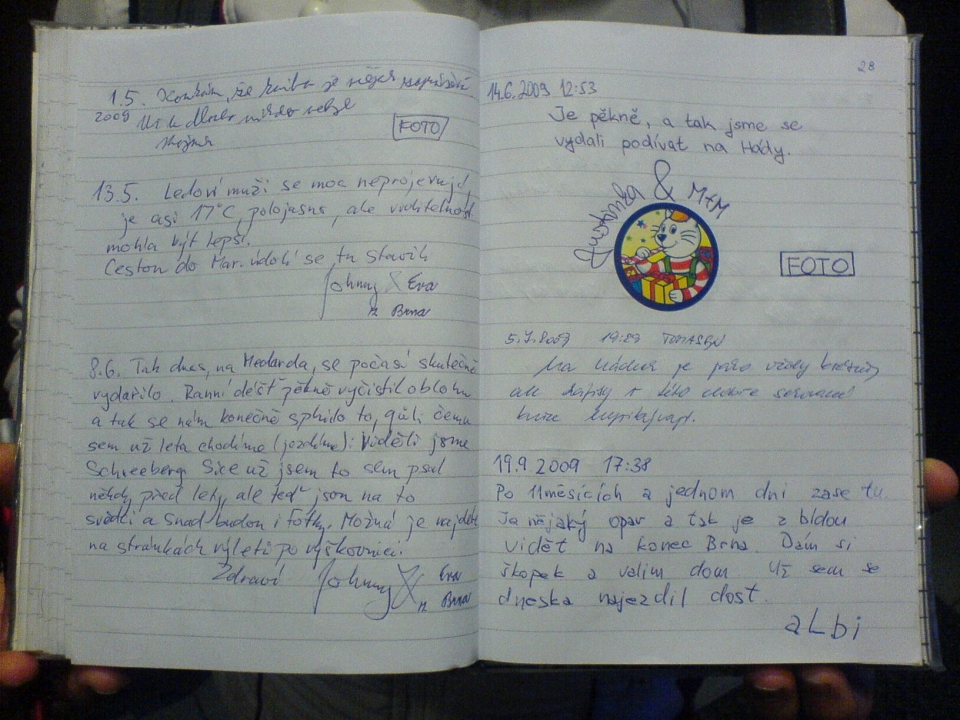 1.5. že kniha je
2009
FOTO
13.5. Ledoví muži se moc neprojevují
je asi 17°C, polojasno, ale viditelnost
mohla být lepší.
Cestou do Mar. údolí se tu stavili
Johnny & Eva
z Brna
8.6. Tak dnes, na Medarda, se počasí skutečně
vydařilo. Ranní déšť pěkně vyčistil oblohu
a tak se nám konečně splnilo to, kvůli čemu
sem už léta chodíme (jezdíme). Viděli jsme
Schneeberg. Sice už jsem to sem psal
někdy před lety, ale teď jsou na to
svědci a snad budou i fotky. Možná je najdete
na stránkách výletů po výškovnici.
Zdraví Johnny & Eva
z Brna
28
14.6.2009 12:53
Je pěkně, a tak jsme se
vydali podívat na Hády.
Justinka & M+M
FOTO
5.7.2009 19:29
je
ale
19.9 2009 17:38
Po 11 měsících a jednom dni zase tu.
Je nějaký opar a tak je z bídou
vidět na konec Brna. Dám si
škopek a valim dom. Už sem se
dneska najezdil dost.
aLbi